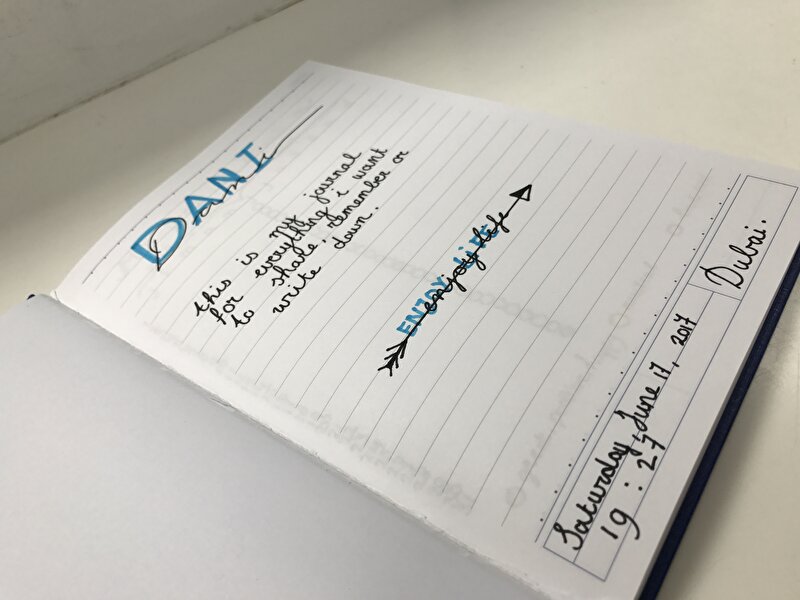 DANI
Dani
this is my journal
for everything i want
to share, remember or
write down.
ENJOY LIFE
enjoy life
Saturday, June 17, 2017
19 : 27
Dubai.